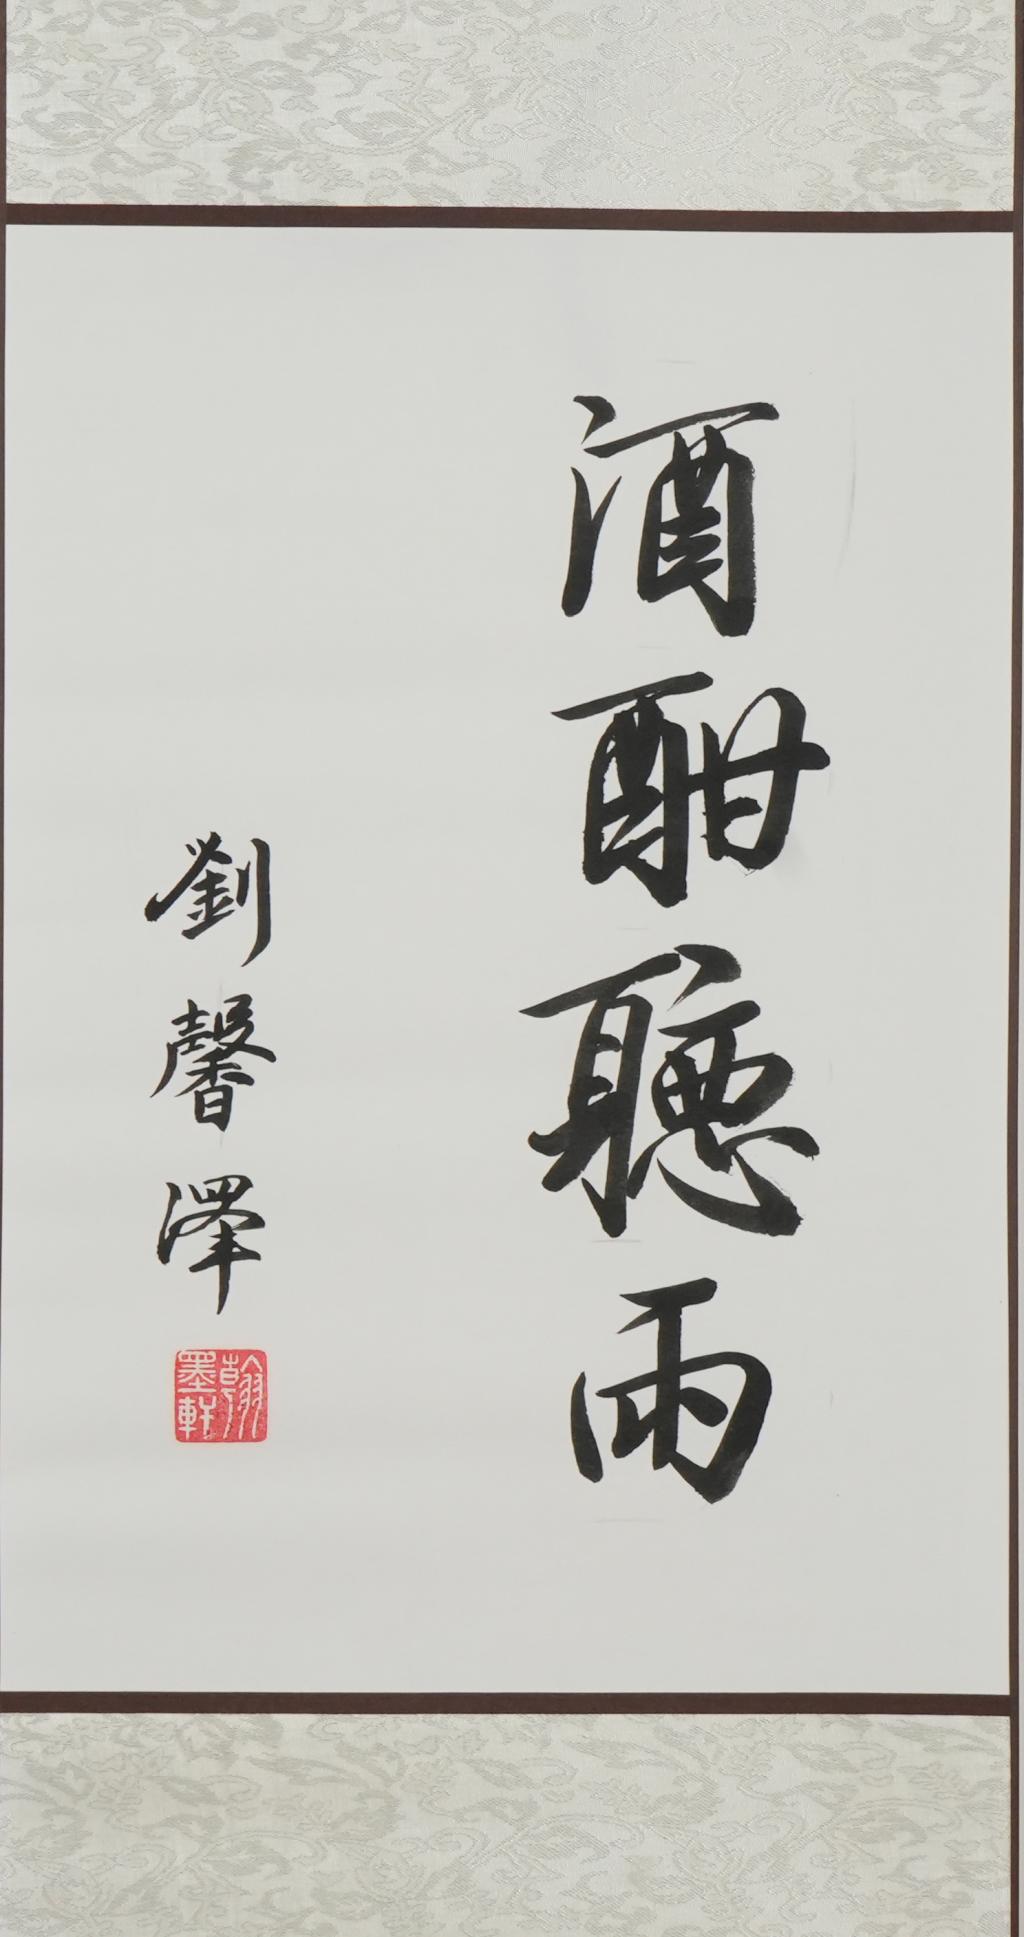 酒酣聽雨
劉馨澤
翰墨軒